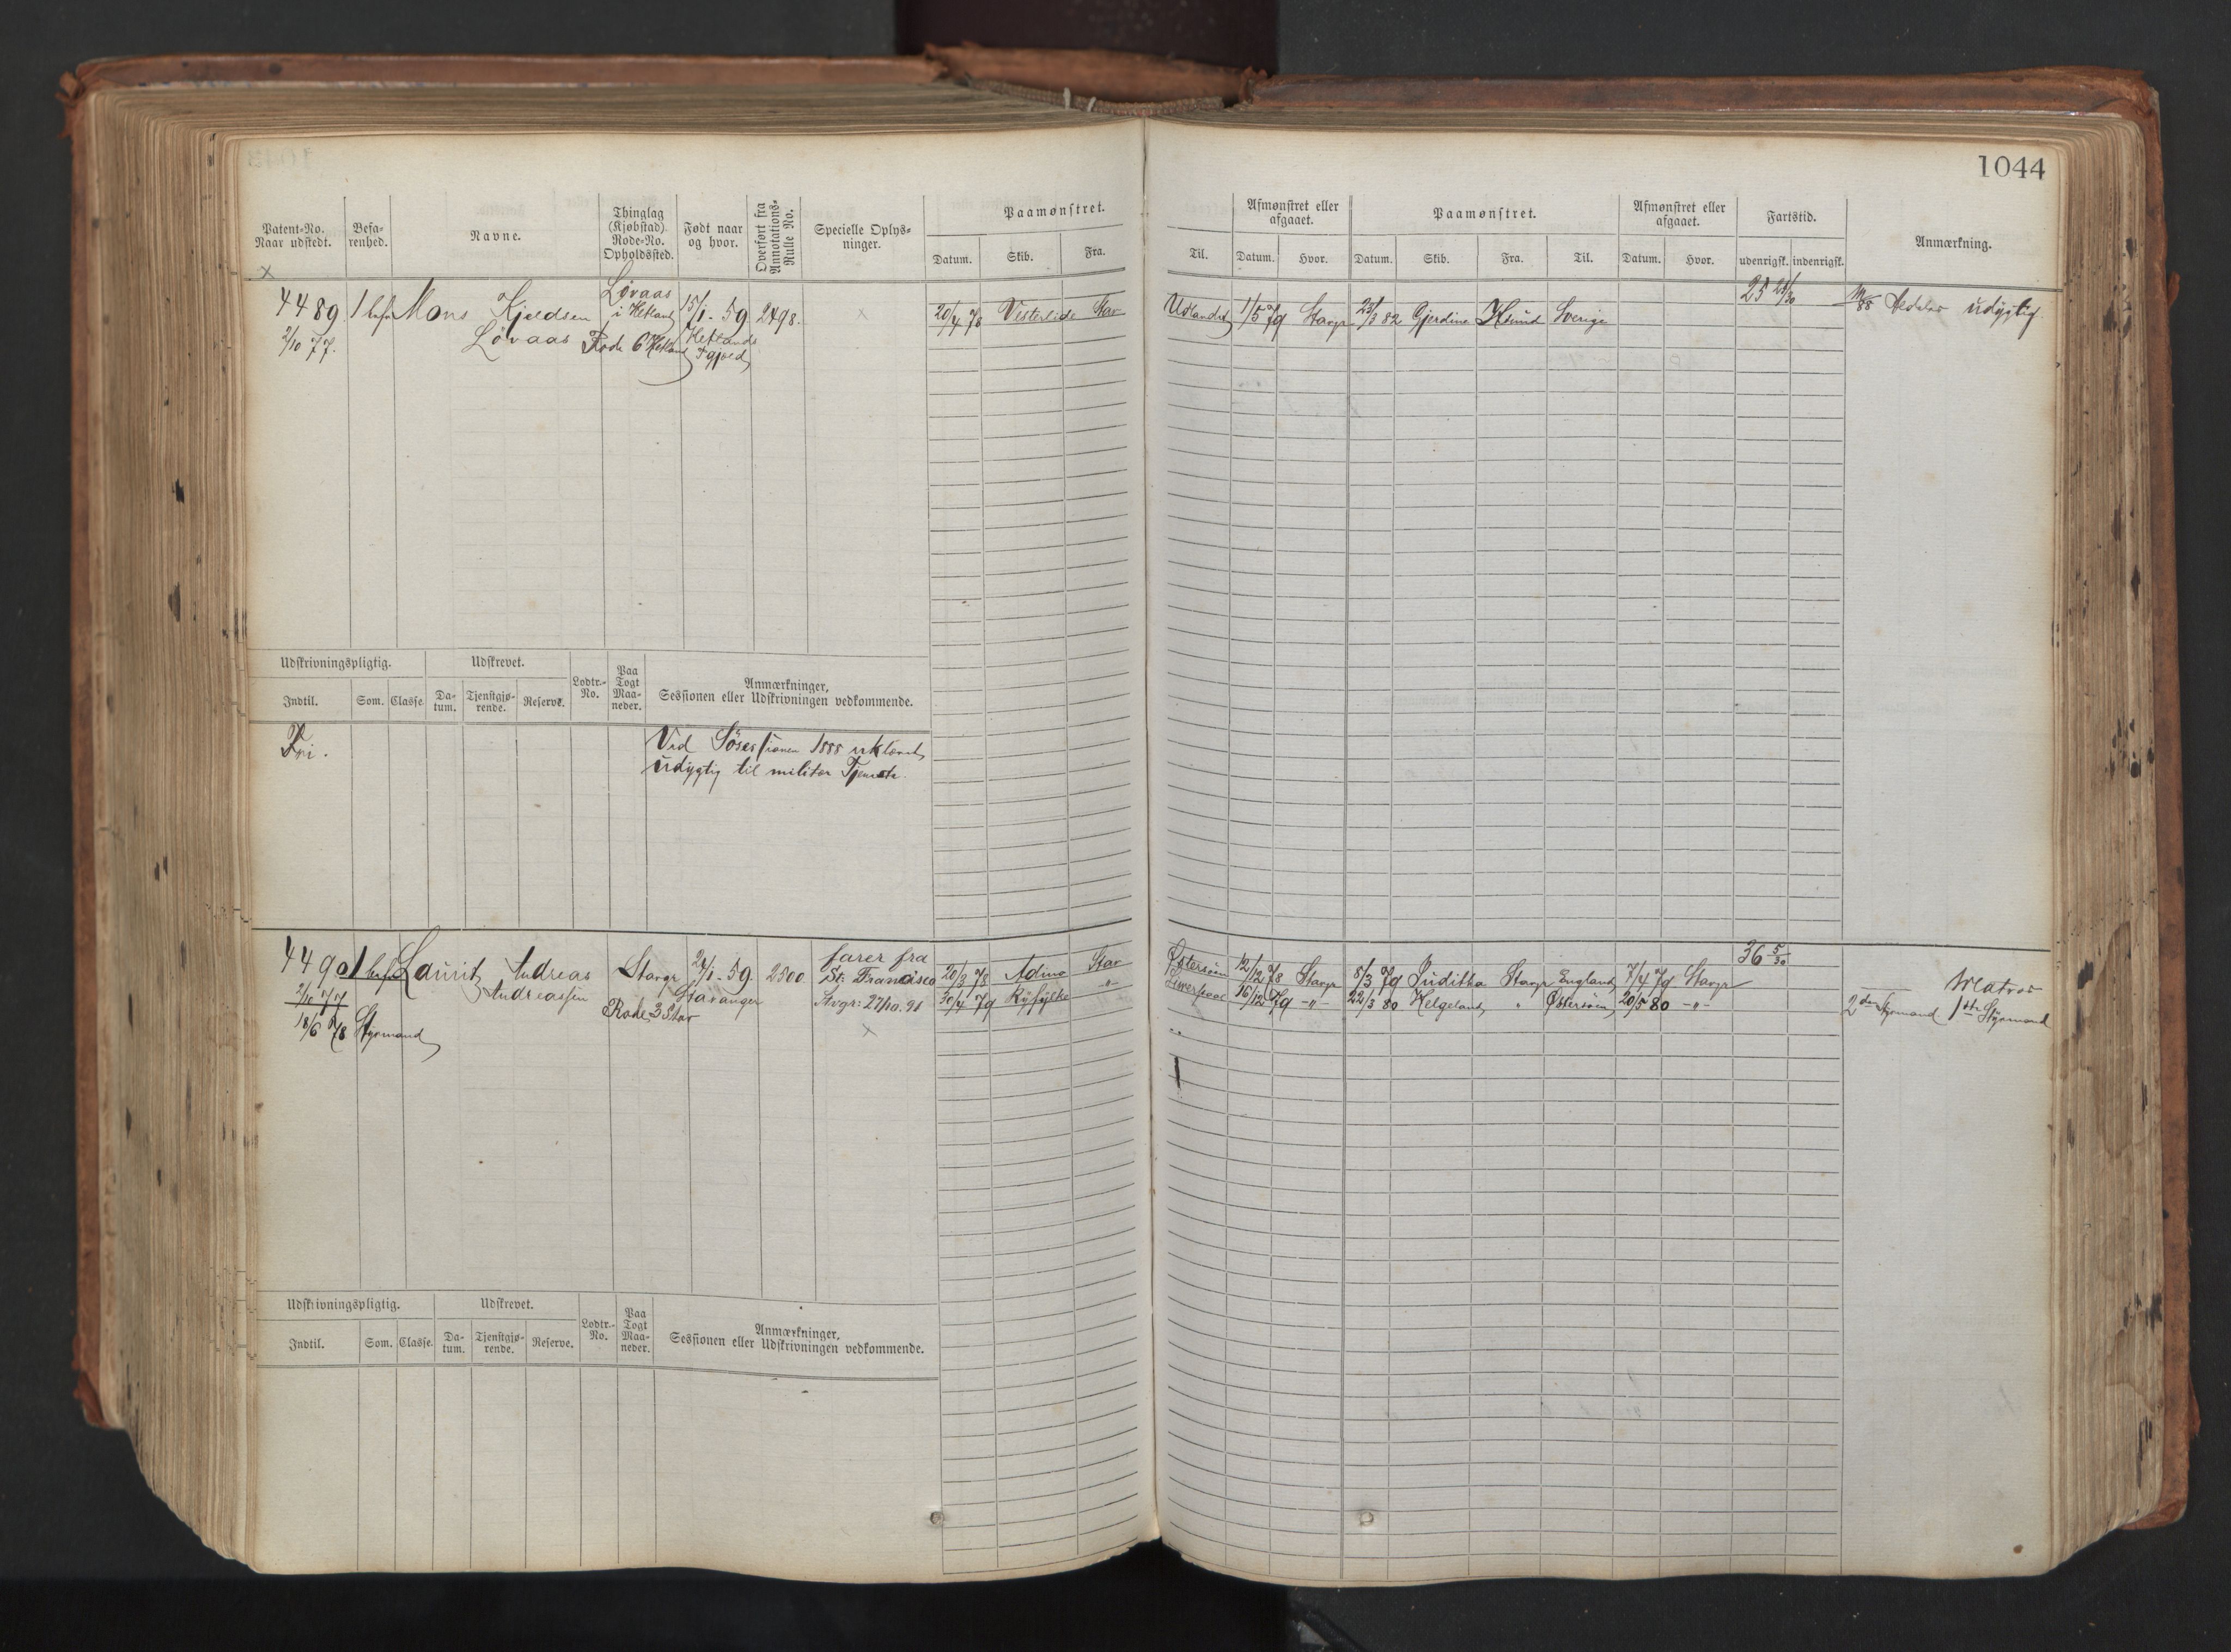 1044
Patent-No.
Naar udstedt.
Befa-
renhed.
Navne.
Thinglag
(Kjøbstad)
Rode-No.
Opholdssted.
Født naar
og hvor.
Overført fra
Annotations-
Rulle No.
Specielle Oplys-
ninger.
Paamønstret.
Datum. Skib. Fra.
Til.
Afmønstret eller
afgaaet.
Datum. Hvor.
Paamønstret.
Datum. Skib. Fra. Til.
Afmønstret eller
afgaaet.
Datum. Hvor.
Fartstid.
udenrigsk. indenrigsk.
Anmærkning.
x
4489. 1 bef. Mons Kjeldsen
Løvaas
2/10 77.
Løvaas
i Hetland
Rode 6 Hetland
15/1-59
Hetlands
Pgjæld
2498.
x
20/4 78 Vesterlide Stav
Udlandet 1/5 79 Stavgr 82 Gjerdine Ksund Sverige
25 21/30
85 udygtig.
Udskrivningspligtig. Udskrevet.
Lodtr.-
No.
Paa
Togt
Maa-
neder.
Anmærkninger,
Sessionen eller Udskrivningen vedkommende.
Indtil. Som. Classe
Da-
tum.
Tjenstgjø-
rende.
Reserve.
Fri.
Ved Søsessionen 1885 erklæret
udygtig til militær Tjeneste.
4490 1 bef. Laurits Andreas
Andreassen
2/10 77
18/6 78 Styrmand
Stavgr
Rode 3 Stav
24/1-59.
Stavanger
2500.
farer fra
St. Francisco
Avgr: 27/10.91
x
20/3 78 Adina Stav
30/4 79 Ryfylke "
Østersøen 12/12 78 Stavgr 8/3 79 Juditha Stavgr England 7/4 79 Stavgr
Liverpool 16/12 79 -"- 22/3 80 Helgeland " Østersøen 20/5 80 -"-
36 5/30
Matros
2den Styrmand 1ste Styrmand
Udskrivningspligtig. Udskrevet.
Lodtr.-
No.
Paa
Togt
Maa-
neder.
Anmærkninger,
Sessionen eller Udskrivningen vedkommende.
Indtil. Som. Classe.
Da-
tum.
Tjenstgjø-
rende.
Reserve.